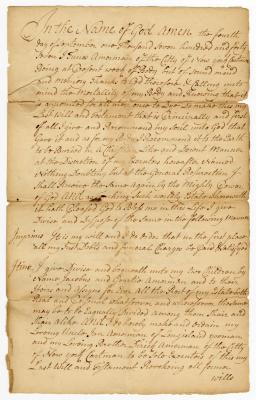 In the Name of God Amen the fourth
day of November one thousand Seven hundred and forty
Seven I Amerman of the City of New york
being at present weak of Body but of Sound mind
and memory Thanks to God therefore & Calling unto
mind the Mortality of my Body and Knowing that it
is appointed for all men once to Dye Do make this my
Last will and testament that is Principally and first
of all I give and Recommend my Soul into God that
Gave it and as for my Body I Recommend it to the Earth
to be Buried in a Christian Like and Decent manner
at the Discretion of my Executors hereafter Named
Nothing Doubting but at the General Resurrection I
shall Receive the Same again by the Mighty Power
of God And touching Such worldly Estate wherewith
it hath Pleased God to Bless me in this Life I give
Devise and Dispose of the Same in the following Manner
Imprimis It is my will and I do order that in the first place
all my Just Debts and funeral Charges be Paid & Satisfied
Item I give Devise and bequeath unto my two Children by
Name Jacobus and Amerman and to their
Heirs and assigns for Ever All the Rest of my Estate both
Real and Personal whatsoever and wheresoever the Same
may be to be Equally Divided among them Share and
Share alike And I do hereby make and ordain my
Loving Uncle Jan Amerman of Long island yeoman
and my Loving Brother Amerman of the City
of New york to be Executors of this my
Last Will and Testament Revoking all former
wills